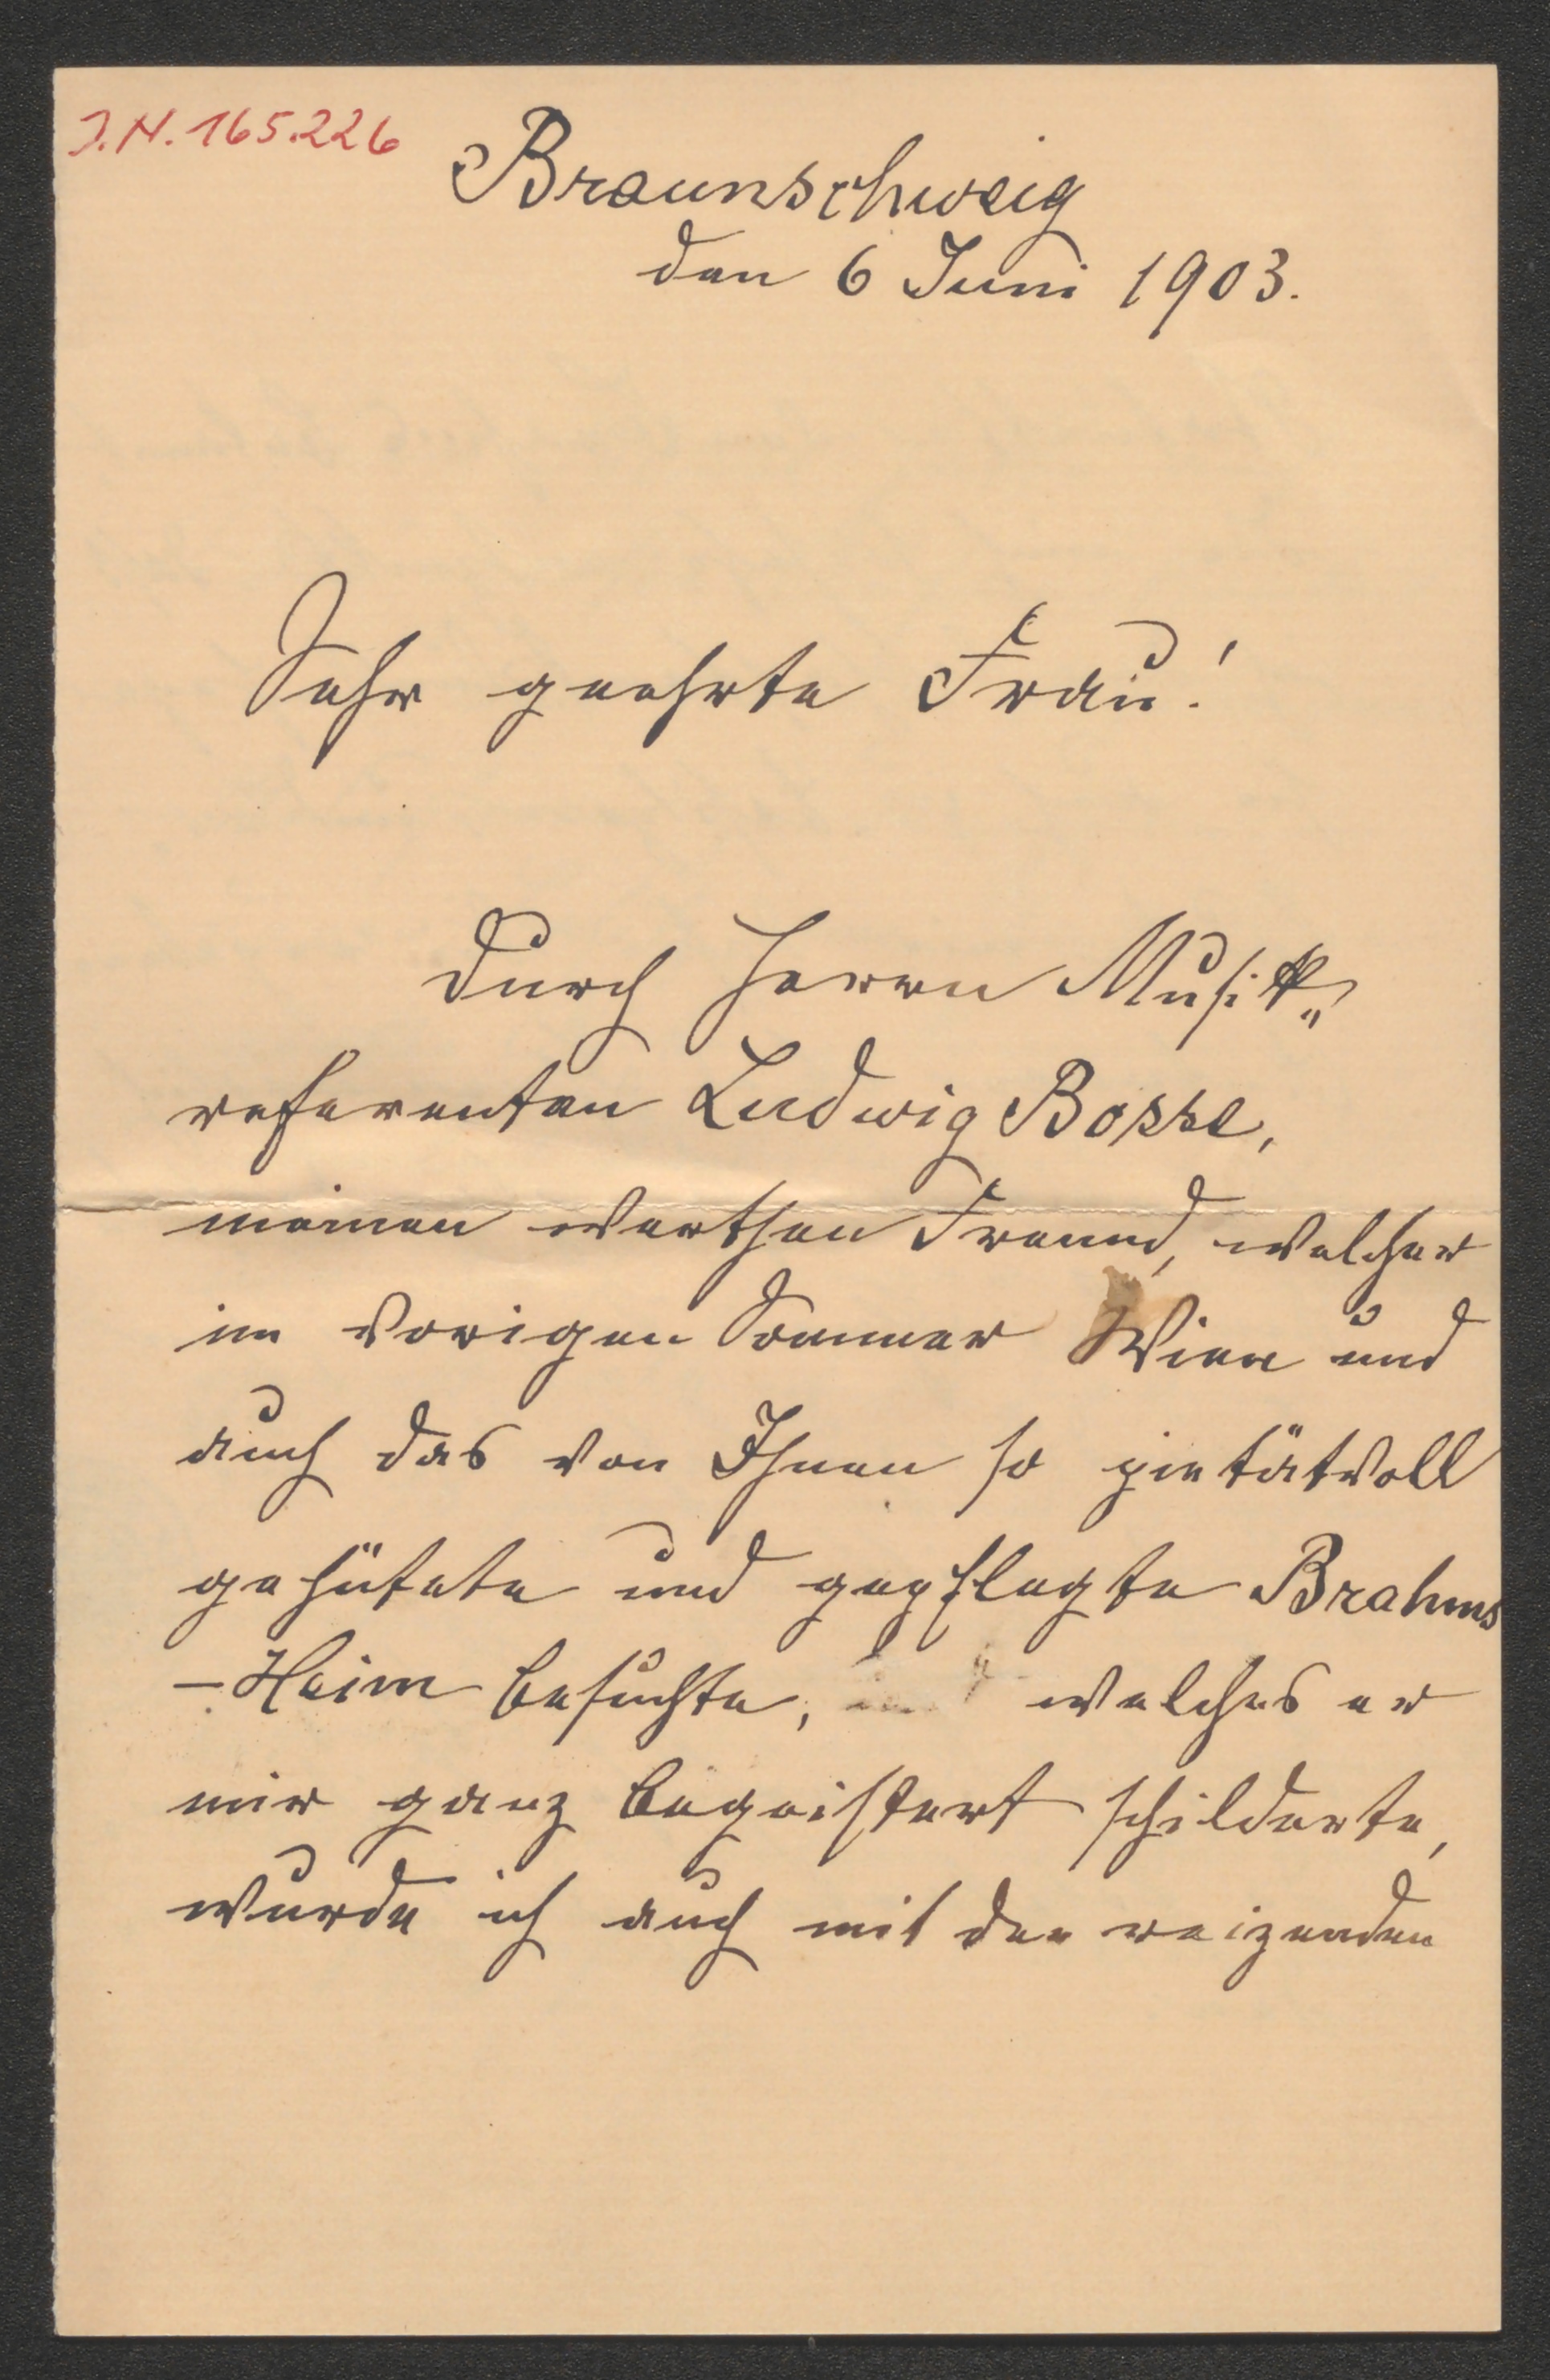 J.N. 165.226
Braunschweig
den 6 Juni 1903.
Sehr geehrte Frau!
Durch Herrn Musik„
referenten Ludwig Bosse,
meinen werthen Freund, welcher
im vorigen Sommer Wien und
auch das von Ihnen so pietätvoll
gehütete und gepflegte Brahms
-Heim besuchte, welches er
mir ganz begeistert schilderte,
wurde ich auch mit den reizenden